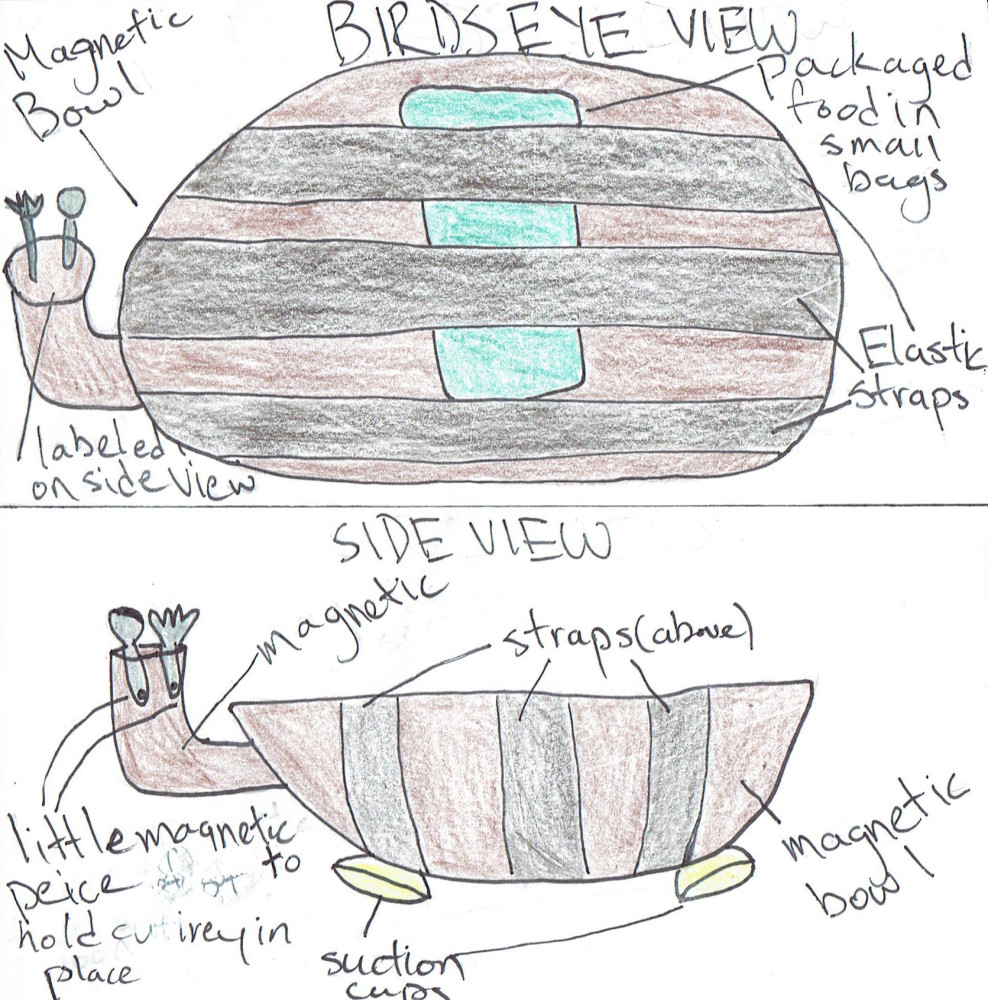 BIRDSEYE VIEW
Magnetic
Bowl
packaged
food in
small
bags
Elastic
straps
labeled
on side view
SIDE VIEW
magnetic
straps (above)
little magnetic
peice to
hold cutirey in
place
magnetic
bowl
suction
cups